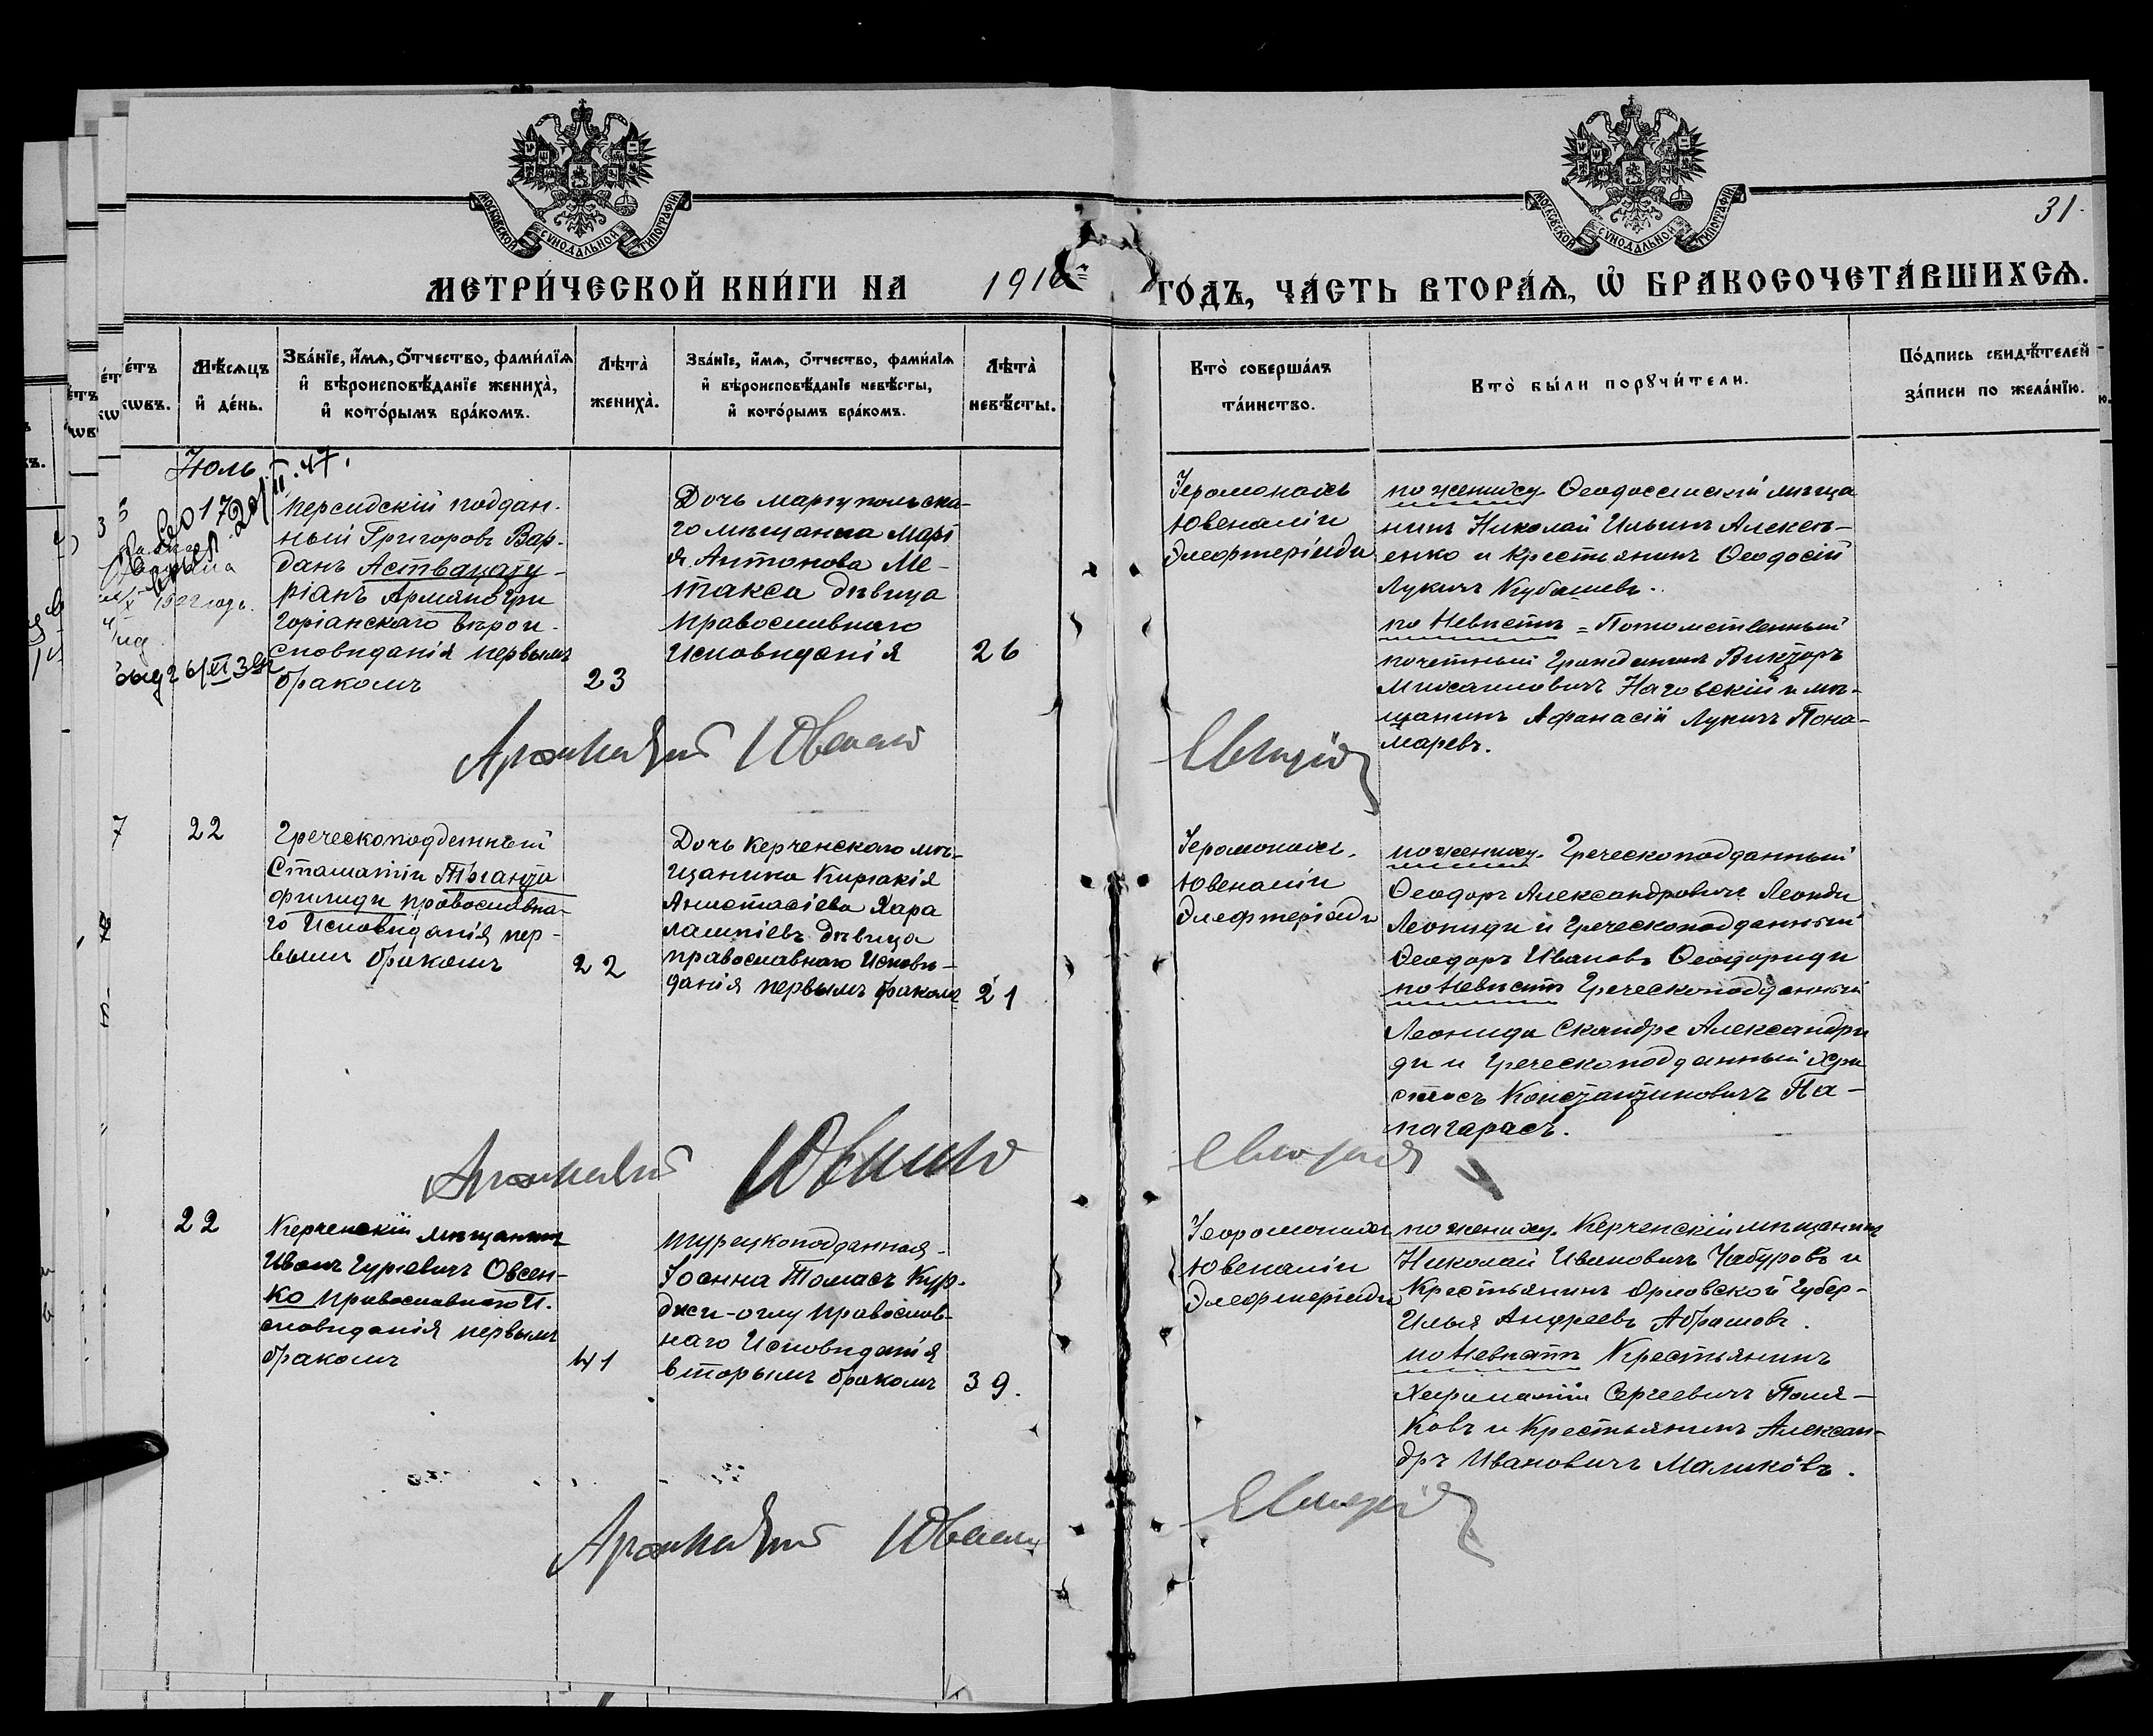 МОСКОВСКОЙ СѴНОДАЛЬНОЙ ТИПОГРАФІИ
МОСКОВСКОЙ СѴНОДАЛЬНОЙ ТИПОГРАФІИ
31
МЕТРИ́ЧЕСКОЙ КНИ́ГИ НА
ГО́ДЪ, ЧА́СТЬ ВТОРА́Ѧ, Ѡ҆ БРАКОСОЧЕТА́ВШИХСѦ.
Мѣ́сѧцъ
и҆ де́нь.
Зва́нїе, и҆́мѧ, ѻ҆́тчество, фами́лїѧ
и҆ вѣроисповѣ́данїе жениха̀,
и҆ кото́рымъ бра́комъ.
Лѣта̀
жениха̀.
Зва́нїе, и҆́мѧ, ѻ҆́тчество, фами́лїѧ
и҆ вѣроисповѣ́данїе невѣ́сты,
и҆ кото́рымъ бра́комъ.
Лѣта̀
невѣ́сты.
Кто̀ соверша́лъ
та́инство.
Кто̀ бы́ли порꙋчи́тели.
По́дпись свидѣ́телей
за́писи по жела́нїю.
Іюль
17
Персидскій поддан-
ный Григоровъ Вар-
данъ Аствацату-
ріанъ Армяно Гри
горіанскаго вѣрои-
сповѣданія первымъ
бракомъ
23
Дочь мариупольска-
го мѣщанина Марі
я Антонова Ме-
такса дѣвица
православнаго
Исповѣданія
26
Іеромонахъ
Ювеналій
Элефтеріади
по жениху Ѳеодоссійскій мѣща
нинъ Николай Ильинъ Алексѣ-
енко и крестьянинъ Ѳеодосій
Лукичъ Кубашевъ.
по Невѣстѣ = Потомственный
почетный Гражданинъ Викторъ
Михаиловичъ Наговскій и мѣ-
щанинъ Афанасій Лукичъ Пона-
маревъ.
7
22
Греческоподданный
Стаматій Трианта
филиди православна-
го Исповѣданія пер-
вымъ бракомъ
22
Дочь Керченскаго мѣ-
щанина Киріакія
Анастасіева Хара
лампіевъ дѣвица
православнаго Исповѣ-
данія первымъ бракомъ
21
Іеромонахъ
Ювеналій
Элефтеріади
по жениху Греческоподданный
Ѳеодоръ Александровичъ Леонди
Леониди и Греческоподданный
Ѳеодоръ Ивановъ Ѳеодориди
по Невѣстѣ Греческоподданный
Леонида Скандре Александри
ди и Греческоподданный Хри
стосъ Константиновичъ Па-
пагарасъ.
22
Керченскій мѣщанинъ
Иванъ Гурьевичъ Овсен-
ко православнаго И-
сповѣданія первымъ
бракомъ
41
Турецкоподданная
Іоанна Томасъ Кур-
джи-оглу православ-
наго Исповѣданія
вторымъ бракомъ
39.
Іеоромонахъ
Ювеналій
Элефтеріади
по жениху Керченскій мѣщанинъ
Николай Ивановичъ Чабуровъ и
Крестьянинъ Орловской Губер-
Илья Андреевъ Абрамовъ.
по Невѣстѣ Крестьянинъ
Сергеевичъ Поля-
ковъ и Крестьянинъ Алексан-
дръ Ивановичъ Маликовъ.